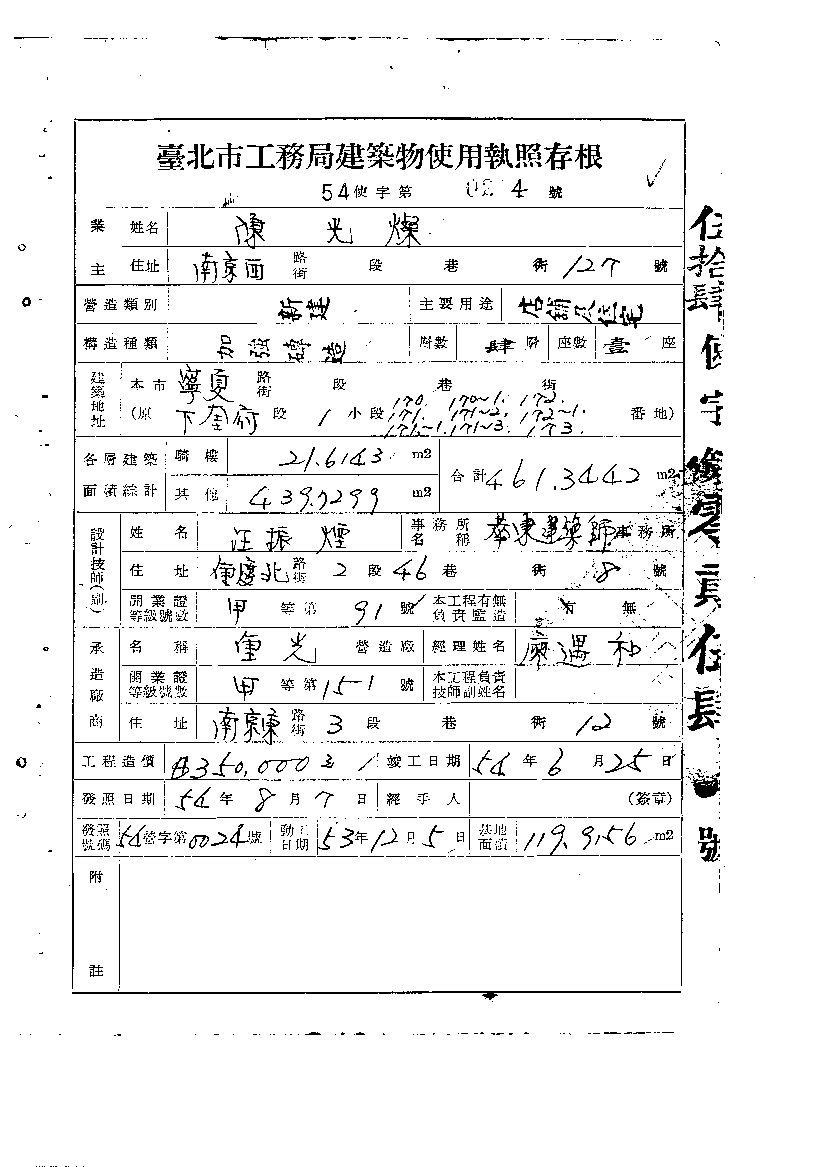 臺北市工務局建築物使用執照存根
54使字第 0 2 4 號
業主 姓名 陳光燦
住址 南京西 路街 段 巷 街 127 號
營造類別 新建 主要用途 店舖及住宅
構造種類 加強磚造 層數 肆層 座數 壹座
建築地址 本市 寧夏 路街 段 巷 街
(原 下奎府 段 1 小段 170. 170~1. 172. 171. 171~2. 172~1. 171~1. 171~3. 173. 番地)
各層建築面積綜計 騎樓 21.6143 m2 合計 461.3442 m2
其他 439.7299 m2
設計技師(副) 姓名 汪振煙 事務所名稱 華東建築師事務所
住址 重慶北 路街 2 段 46 巷 街 8 號
開業證等級號數 甲 等第 91 號 本工程有無負責監造 有 無
承造廠商 名稱 重光 營造廠 經理姓名 廖遇和
開業證等級號數 甲 等第 151 號 本工程負責技師副姓名
住址 南京東 路街 3 段 巷 街 12 號
工程造價 350,000 竣工日期 54年6月25日
發照日期 54年8月7日 經手人 (簽章)
發照號碼 54營字第0024號 動工日期 53年12月5日 基地面積 119.9156 m2
附註
伍拾肆使字 零 伍 號